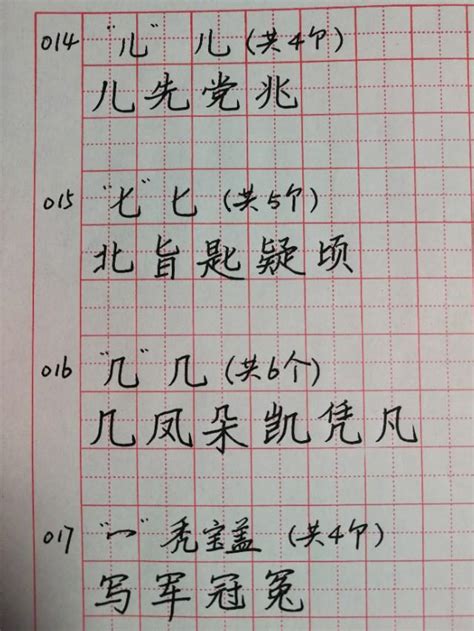 014 "儿" 儿 (共4个)
儿先党兆
015 "匕" 匕 (共5个)
北旨匙疑顷
016 "几" 几 (共6个)
几凤朵凯凭凡
017 "冖" 秃宝盖 (共4个)
写军冠冤